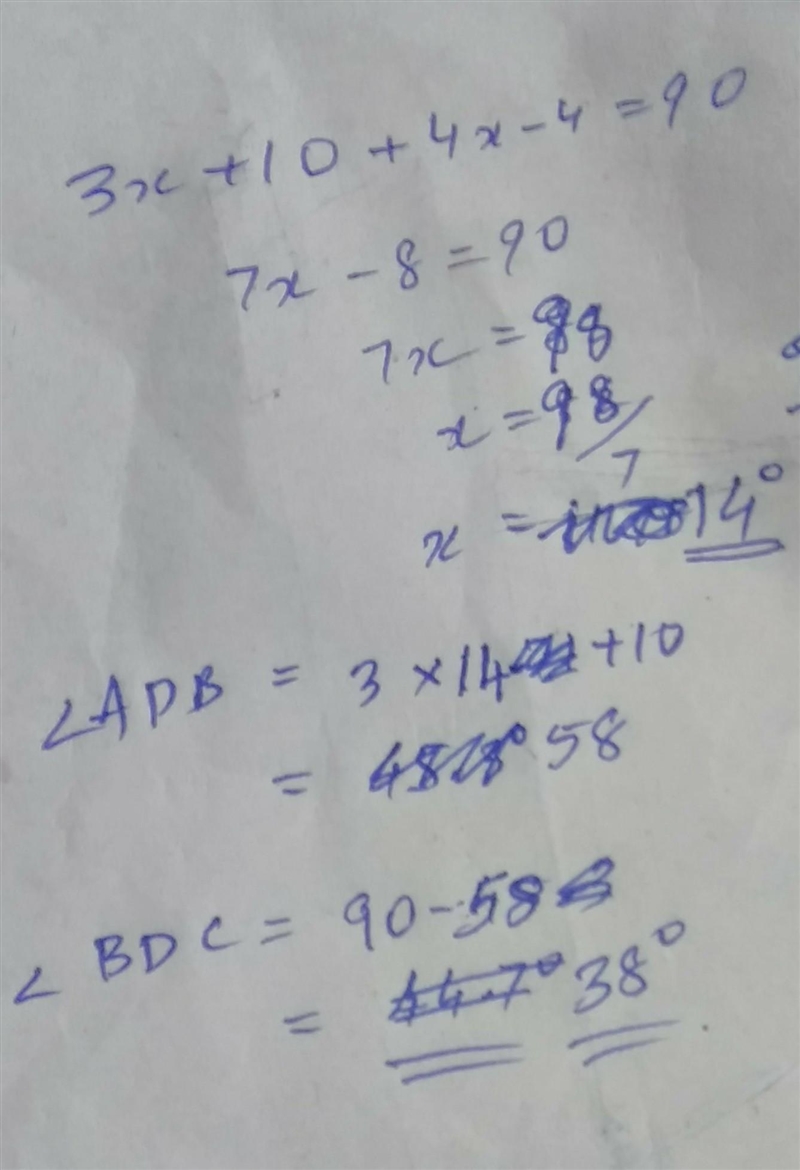 3x + 10 + 4x - 4 = 90
7x - 8 = 90
7x = 98
x = 98/7
x = 14°
∠ADB = 3 × 14 + 10
= 58
∠BDC = 90 - 58
= 38°